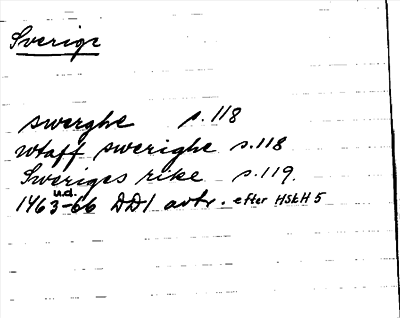 Sverige
swerghe s. 118
wtaff swerighe s. 118
Sweriges rike s. 119.
u.d.
1463-66 DD1 avtr. efter HSkH 5